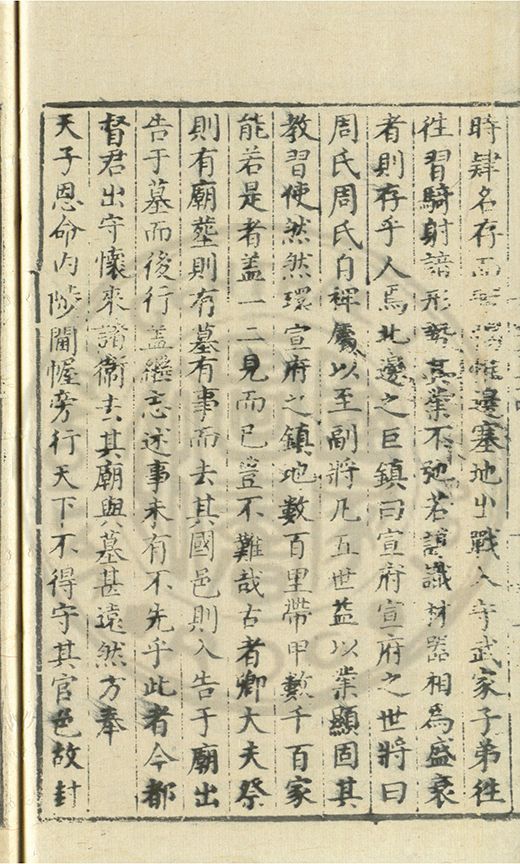 時肄名存而無□惟邊塞地出戰入守武家子弟徃
徃習騎射諳形勢其業不弛若謀識材器相為盛衰
者則存乎人焉北邊之巨鎮曰宣府宣府之世將曰
周氏周氏自裨屬以至副將凡五世益以業顯固其
教習使然然環宣府之鎮地數百里帶甲數千百家
能若是者盖一二見而已豈不難哉古者卿大夫祭
則有廟塟則有墓有事而去其國邑則入告于廟出
告于墓而後行盖繼志述事未有不先乎此者今都
督君出守懷來諸衛去其廟與墓甚遠然方奉
天子恩命内陟閫幄旁行天下不得守其官邑故封